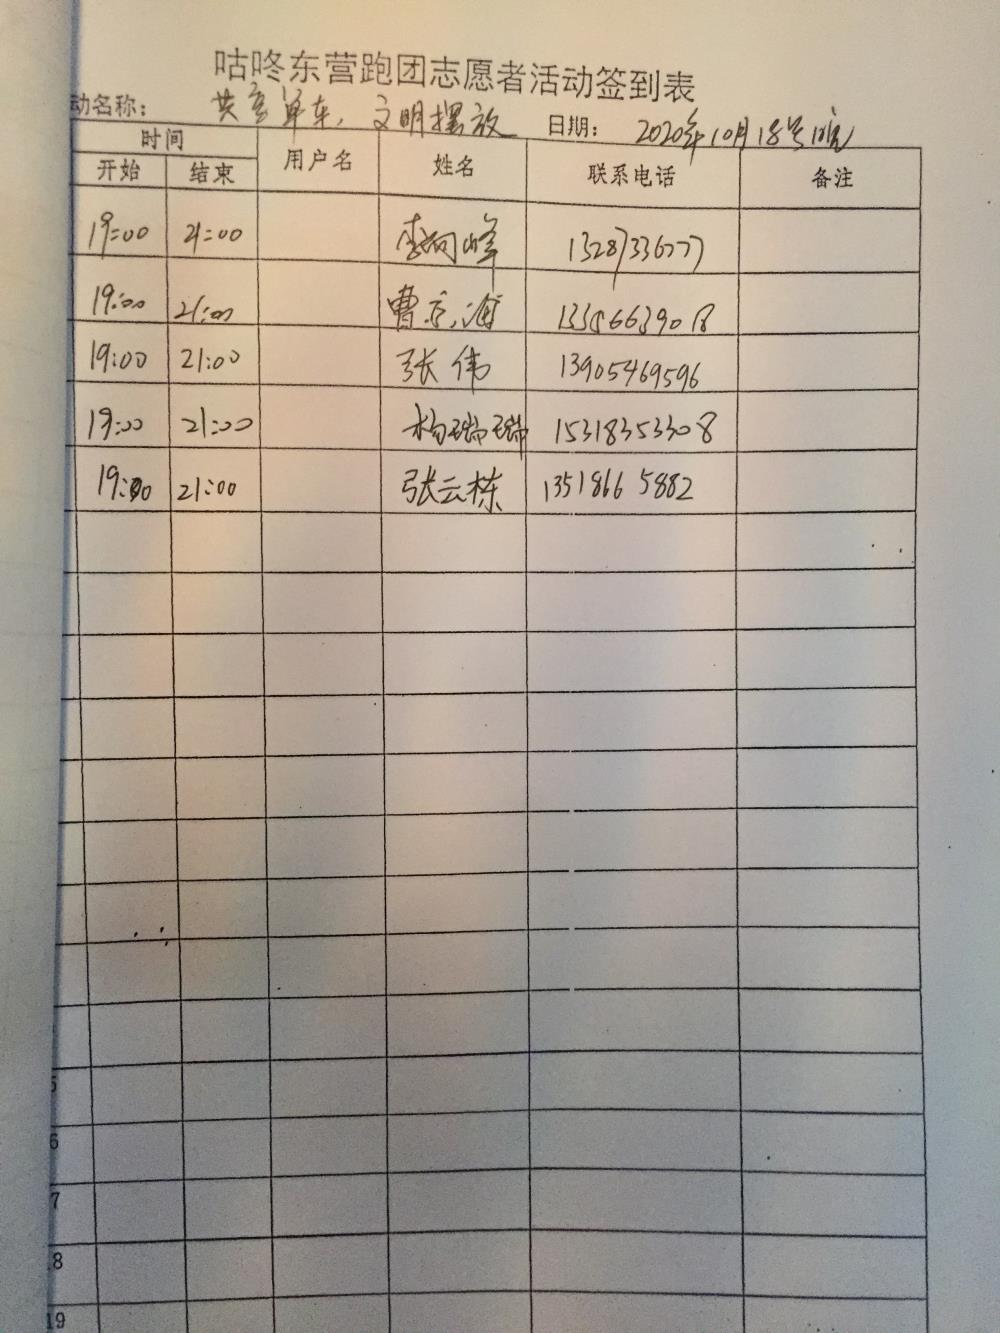 咕咚东营跑团志愿者活动签到表
动名称： 共享单车，文明摆放 日期： 2020年10月18号
时间 用户名 姓名 联系电话 备注
开始 结束
19:00 21:00 李向峰 13287336777
19:00 21:00 曹
19:00 21:00 张伟 13905469596
19:00 21:00 杨瑞瑞 15318353308
19:00 21:00 张云栋 13518665882
6
7
8
19